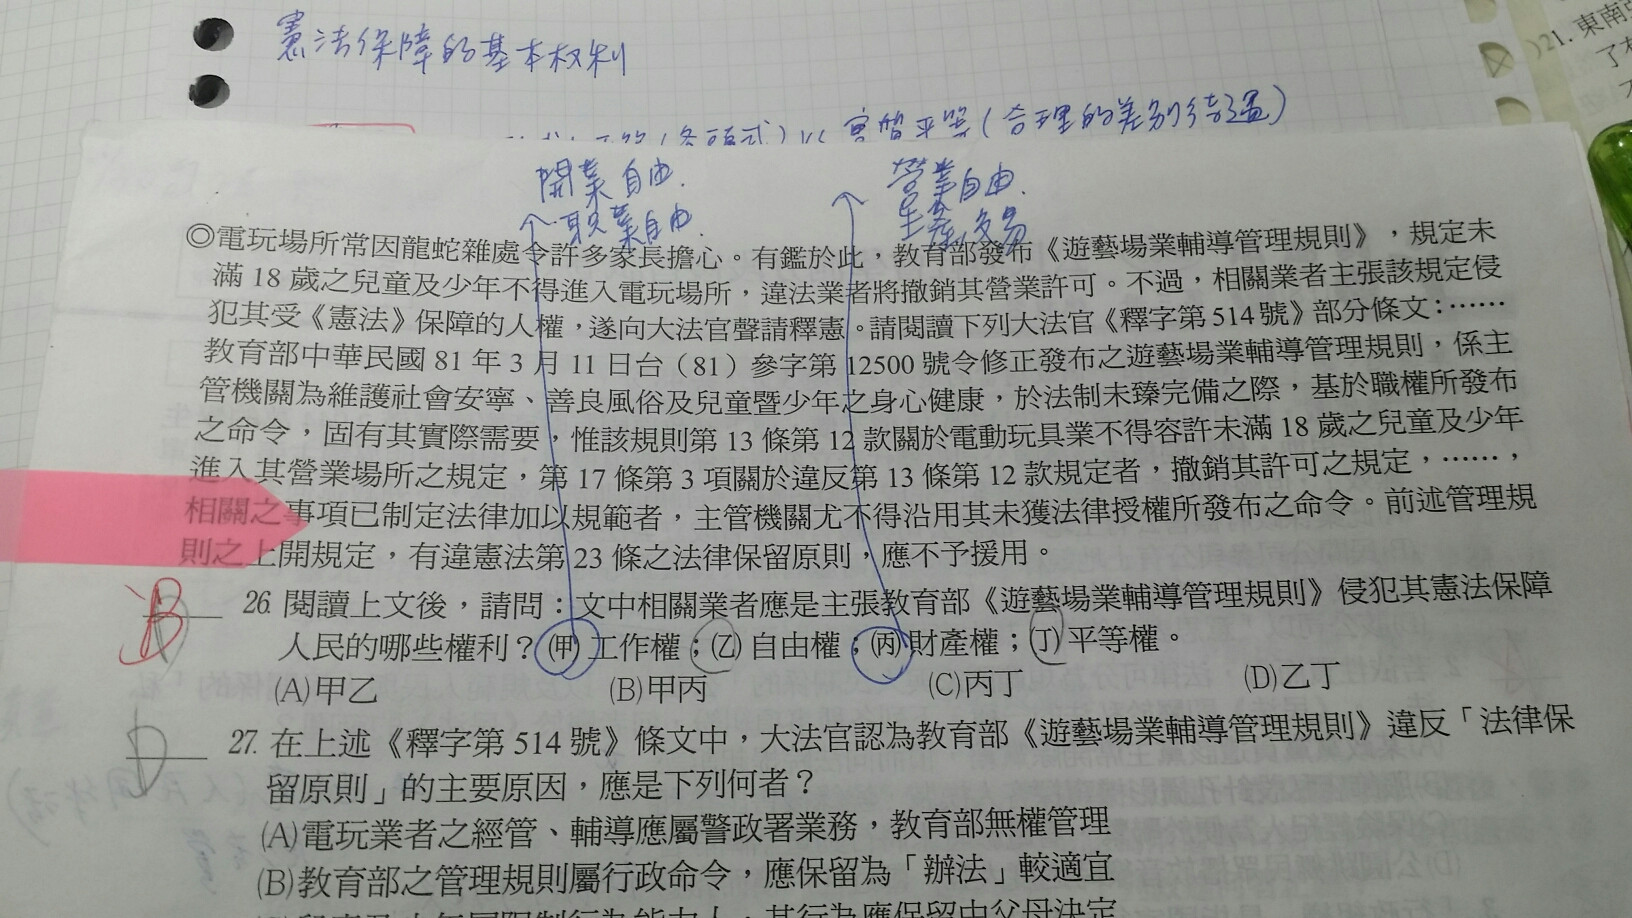 憲法保障的基本权利
實質平等(合理的差別待遇)
21. 東南
了
開業自由.
职業自由.
營業自由.
生產,交易
◎電玩場所常因龍蛇雜處令許多家長擔心。有鑑於此，教育部發布《遊藝場業輔導管理規則》，規定未
滿 18 歲之兒童及少年不得進入電玩場所，違法業者將撤銷其營業許可。不過，相關業者主張該規定侵
犯其受《憲法》保障的人權，遂向大法官聲請釋憲。請閱讀下列大法官《釋字第 514 號》部分條文：……
教育部中華民國 81 年 3 月 11 日台（81）參字第 12500 號令修正發布之遊藝場業輔導管理規則，係主
管機關為維護社會安寧、善良風俗及兒童暨少年之身心健康，於法制未臻完備之際，基於職權所發布
之命令，固有其實際需要，惟該規則第 13 條第 12 款關於電動玩具業不得容許未滿 18 歲之兒童及少年
進入其營業場所之規定，第 17 條第 3 項關於違反第 13 條第 12 款規定者，撤銷其許可之規定，……，
相關之事項已制定法律加以規範者，主管機關尤不得沿用其未獲法律授權所發布之命令。前述管理規
則之上開規定，有違憲法第 23 條之法律保留原則，應不予援用。
B 26. 閱讀上文後，請問：文中相關業者應是主張教育部《遊藝場業輔導管理規則》侵犯其憲法保障
人民的哪些權利？(甲)工作權；(乙)自由權；(丙)財產權；(丁)平等權。
(A)甲乙 (B)甲丙 (C)丙丁 (D)乙丁
D 27. 在上述《釋字第 514 號》條文中，大法官認為教育部《遊藝場業輔導管理規則》違反「法律保
留原則」的主要原因，應是下列何者？
(A)電玩業者之經管、輔導應屬警政署業務，教育部無權管理
(B)教育部之管理規則屬行政命令，應保留為「辦法」較適宜